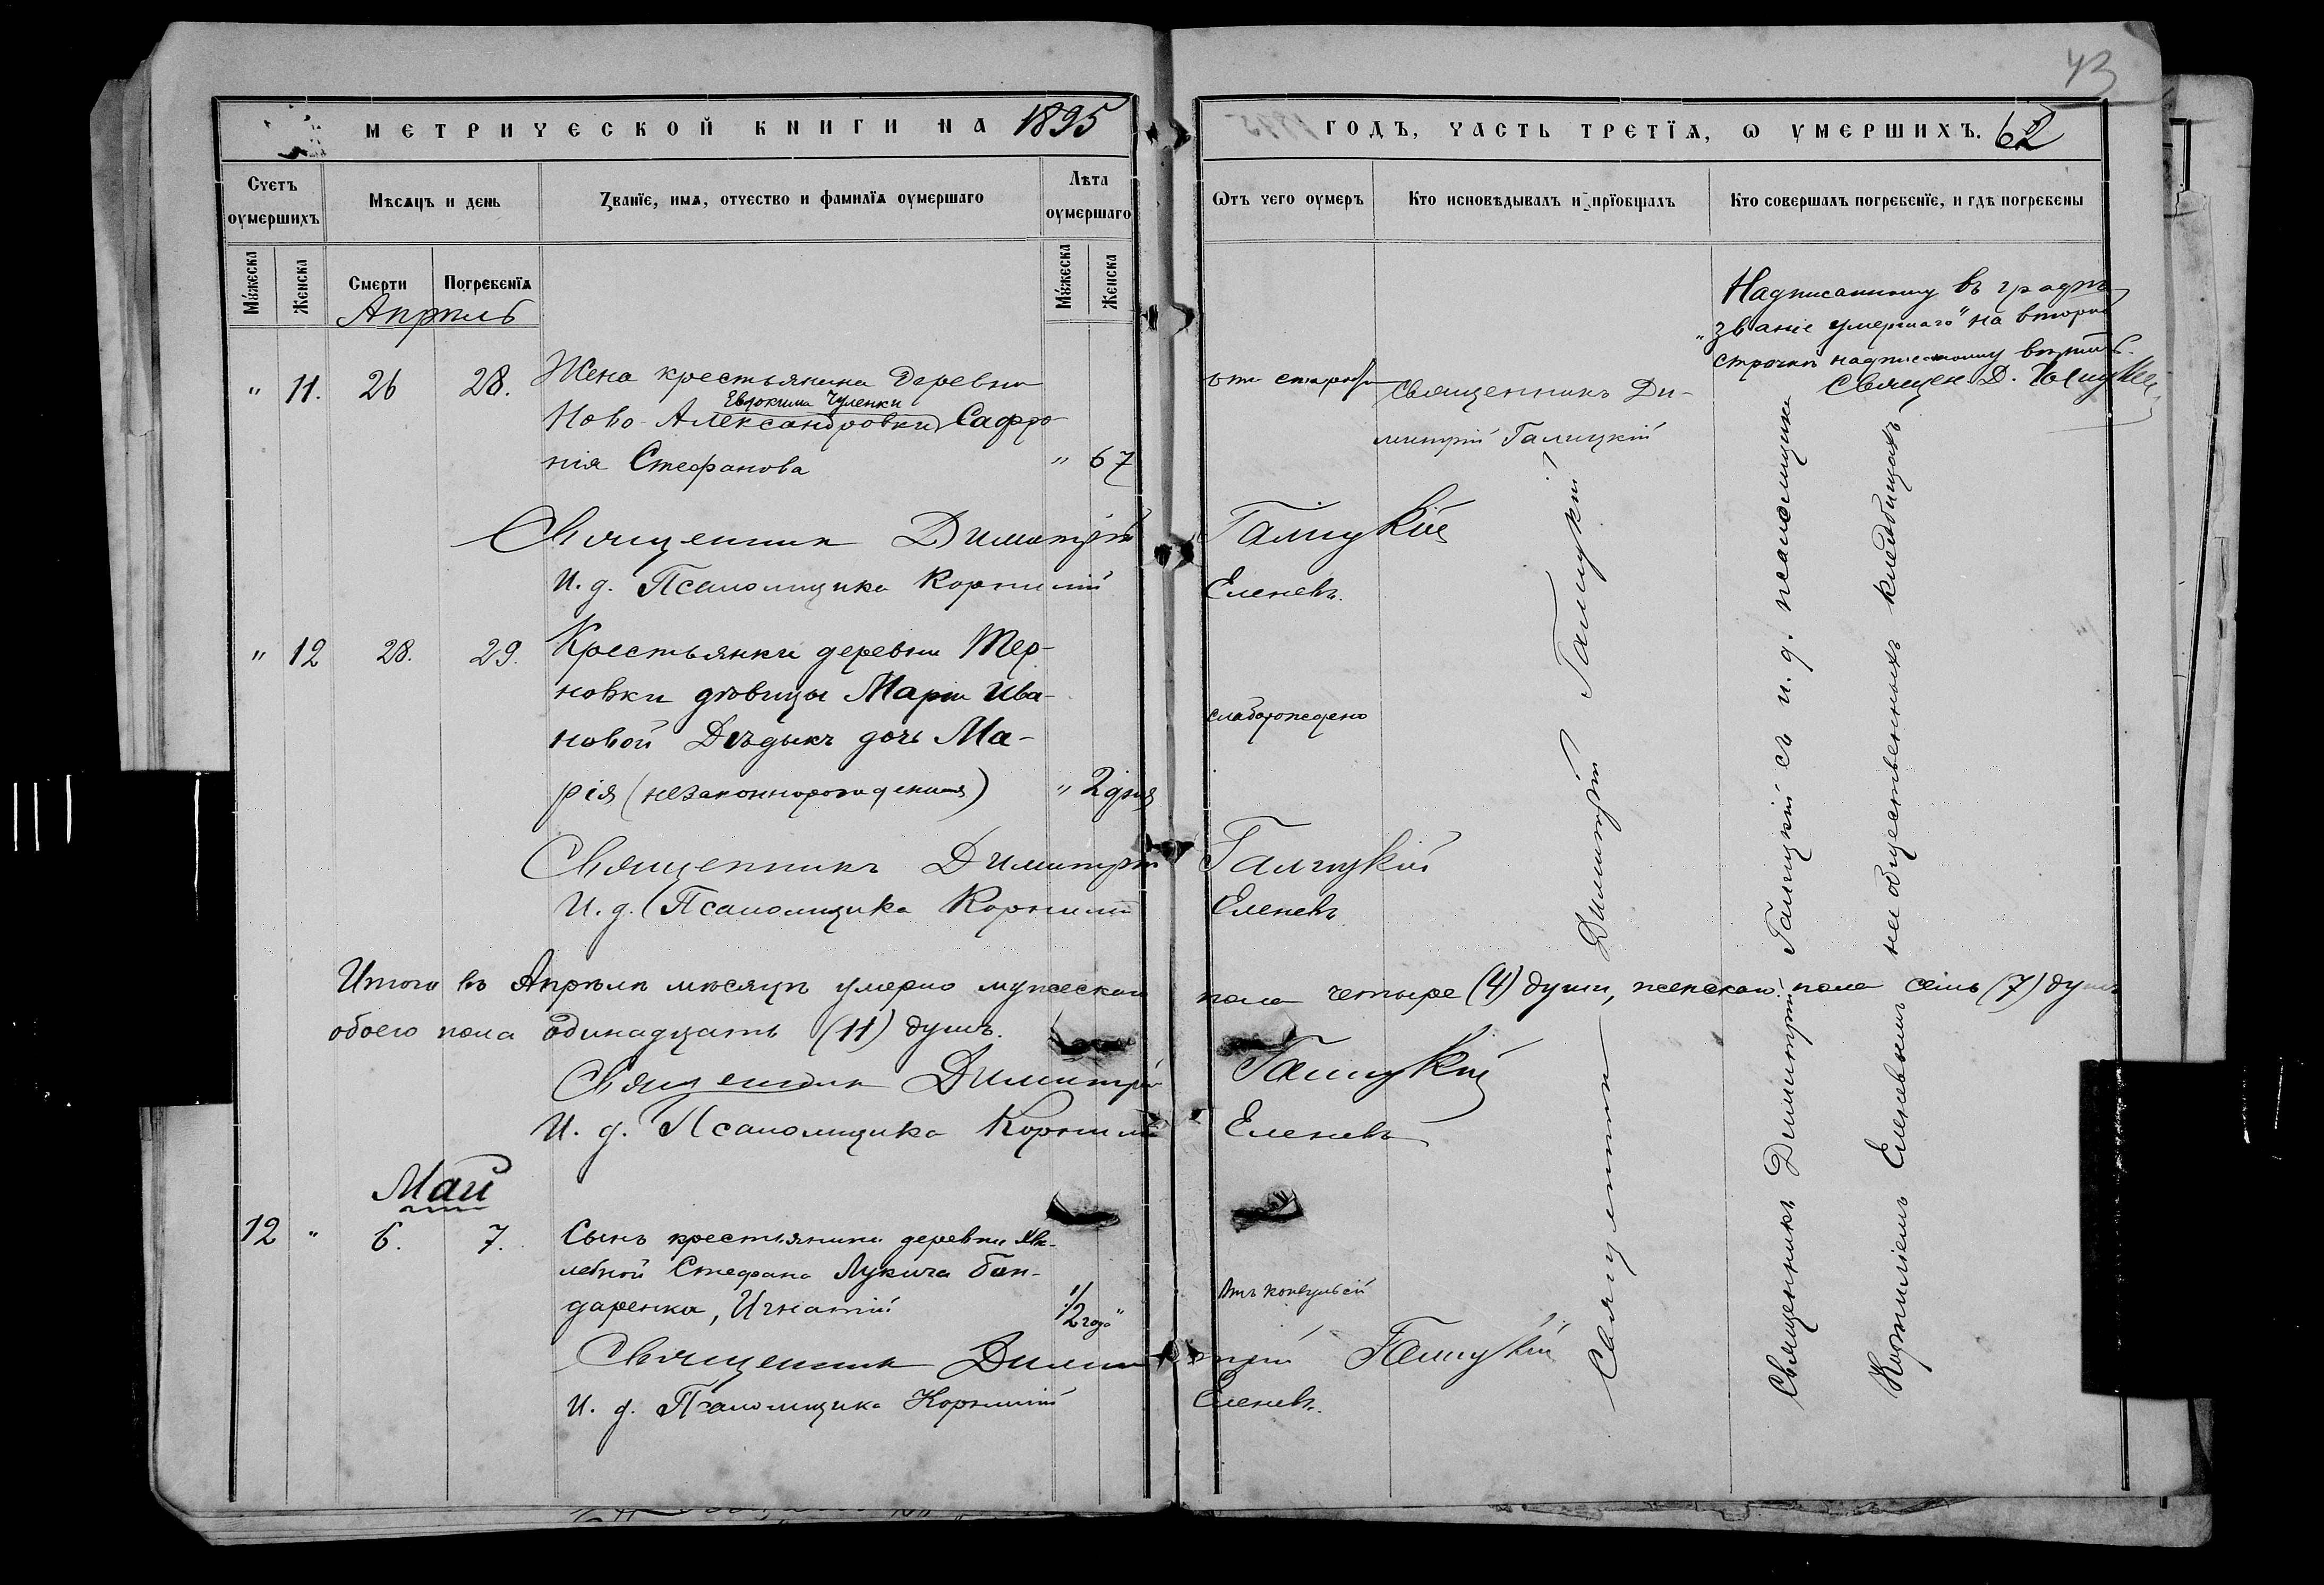 43
МЕТРИЧЕСКОЙ КНИГИ НА 1895
ГОДЪ, ЧАСТЬ ТРЕТЇѦ, Ѡ УМЕРШИХЪ. 62
Счетъ оумершихъ
Мѣсѧцъ и день
Званїе, имѧ, отчество и фамилїѧ оумершаго
Лѣта оумершаго
Ѿтъ чего оумеръ
Кто исповѣдывалъ и прїобщалъ
Кто совершалъ погребенїе, и гдѣ погребены
Мꙋжеска
Женска
Смерти
Погребенїѧ
Мꙋжеска
Женска
Апрѣль
Надписанному въ графѣ
"званіе умершаго" на второй
строчкѣ надписанному вѣрить.
Священ. Д. Галицкій
" 11. 26 28. Жена крестьянина деревни
Евдокима Чуленки
Ново-Александровки Сафро-
нія Стефанова " 67
отъ старости
Священникъ Ди-
митрій Галицкій
Священникъ Димитрій Галицкій
И. д. Псаломщика Корнилій Еленевъ.
" 12 28. 29. Крестьянки деревни Тер-
новки дѣвицы Маріи Ива-
новой Дѣдыкъ дочь Ма-
рія (незаконнорожденная) " 2 дня
слаборождено
Священникъ Димитрій Галицкій
И. д. Псаломщика Корнилій Еленевъ.
Итого въ Апрѣлѣ мѣсяцѣ умерло мужескаго пола четыре (4) души, женскаго пола семь (7) душъ
обоего пола одинадцать (11) душъ.
Священникъ Димитрій Галицкій
И. д. Псаломщика Корнилій Еленевъ
Май
12 " 6. 7. Сынъ крестьянина деревни
Стефана Лукича Бон-
даренка, Игнатій 1/2 года "
Отъ конвульсій
Священникъ Димитрій Галицкій
И. д. Псаломщика Корнилій Еленевъ.
Священникъ Димитрій Галицкій
Священникъ Димитрій Галицкій съ и. д. псаломщика
Корниліемъ Еленевымъ на общественныхъ кладбищахъ